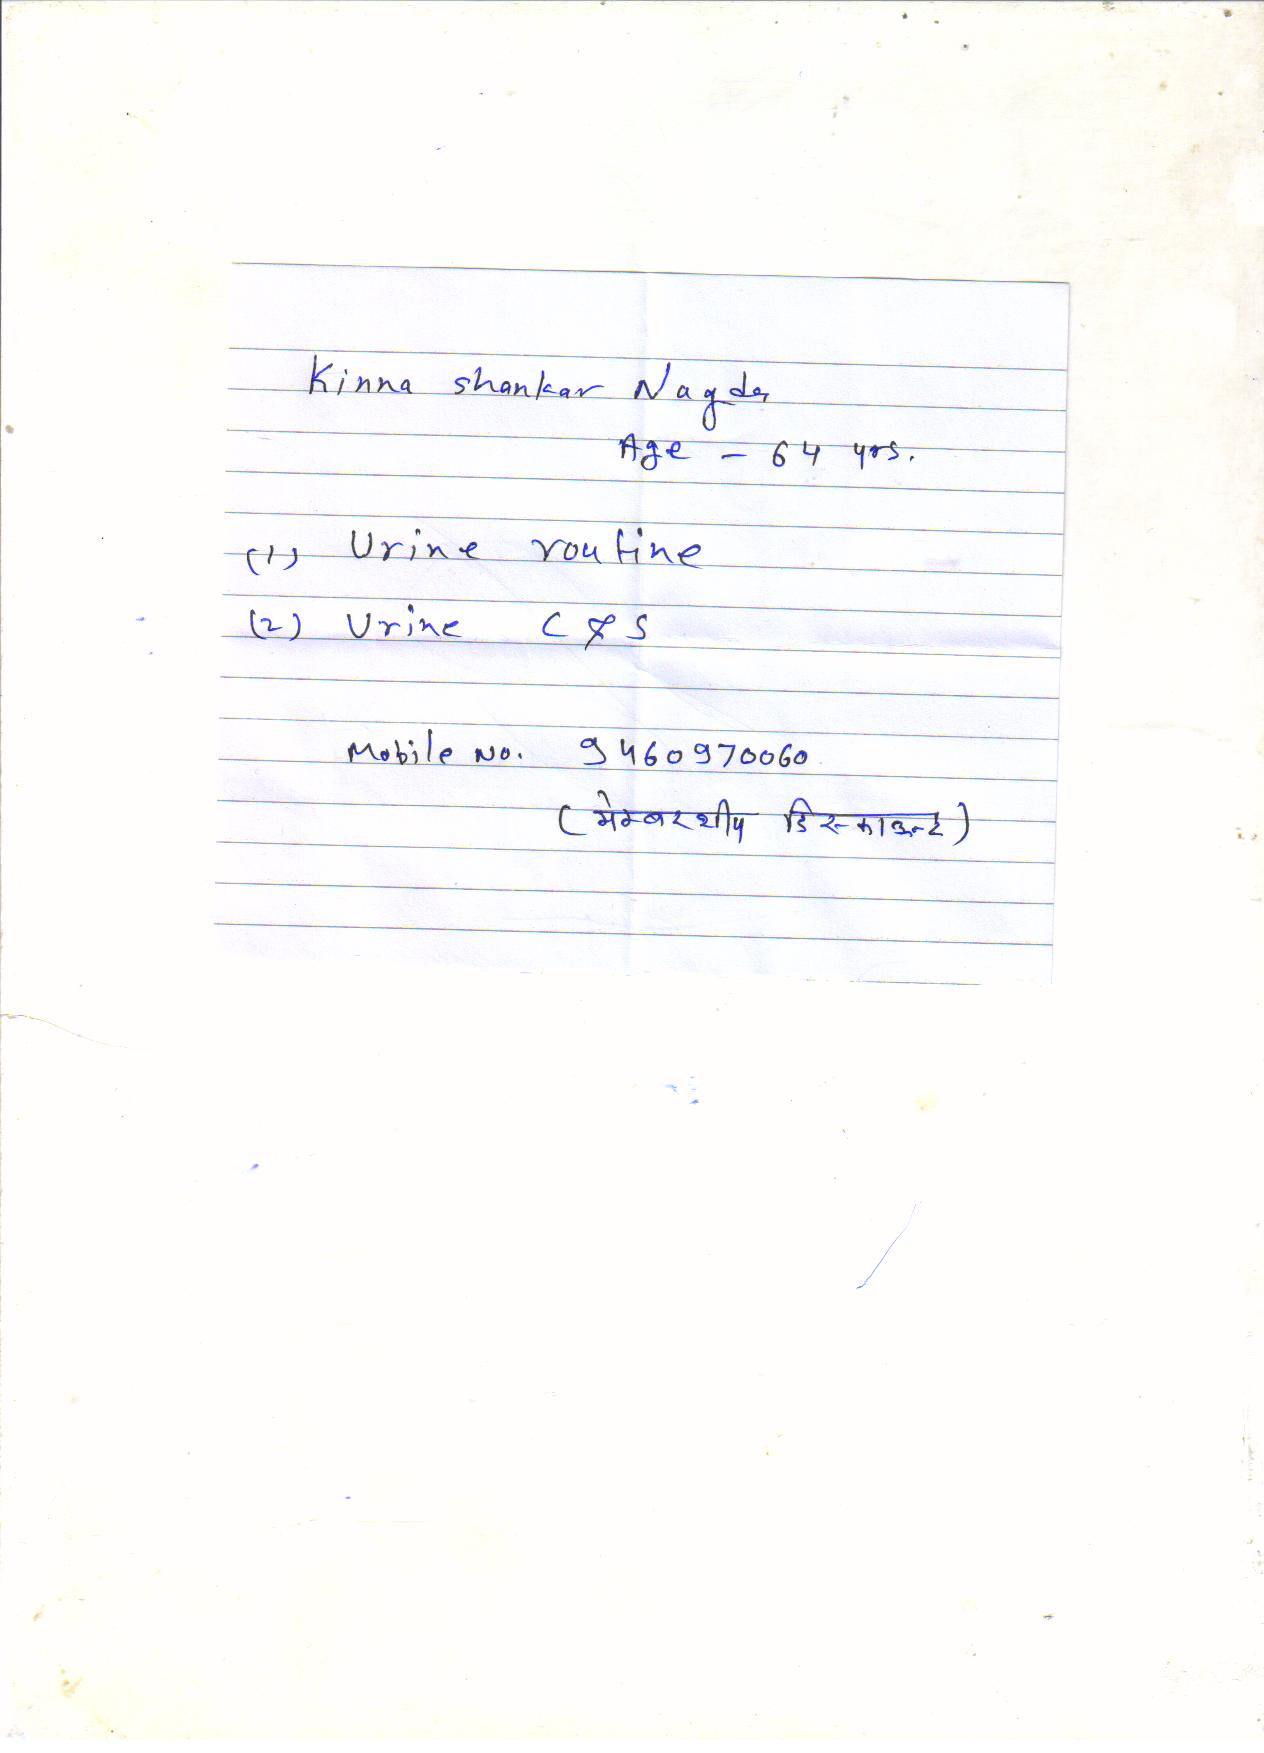 Kinna shankar Nagda
Age - 64 yrs.
(1) Urine routine
(2) Urine C & S
Mobile No. 9460970060
(मेम्बरशीप डिस्काऊन्ट)